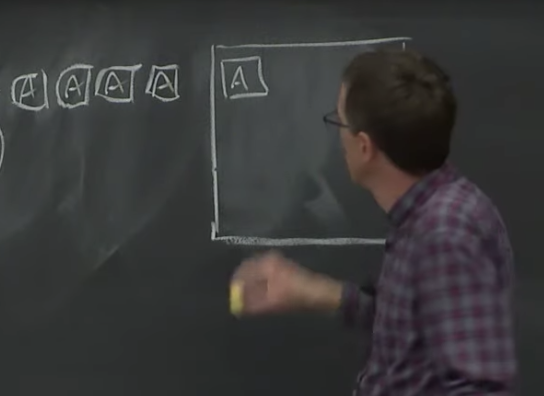 A A A A A